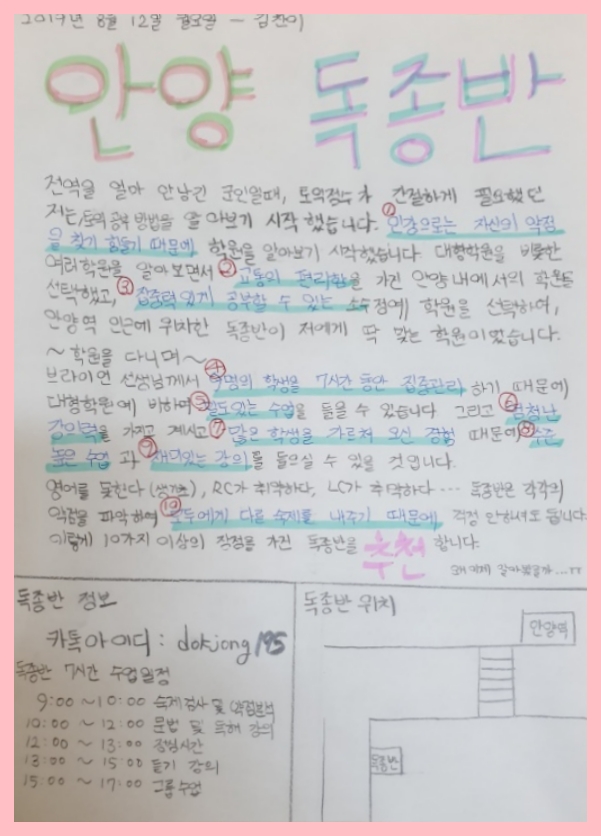 2019년 8월 12일 월요일 - 김찬이
안양 독종반
전역을 얼마 안남긴 군인일때, 토익점수가 간절하게 필요했던
저는 토익 공부 방법을 알아보기 시작 했습니다. ① 인강으로는 자신의 약점
을 찾기 힘들기 때문에 학원을 알아보기 시작했습니다 대형학원을 비롯한
여러학원을 알아보면서 ② 교통의 편리함을 가진 안양 내에서의 학원을
선택했고, ③ 집중력있게 공부할 수 있는 소수정예 학원을 선택하여,
안양역 인근에 위치한 독종반이 저에게 딱 맞는 학원이었습니다.
~ 학원을 다니며 ~
브라이언 선생님께서 ④ 명의 학생을 7시간 동안 집중관리 하기 때문에
대형학원에 비하여 ⑤ 밀도있는 수업을 들을 수 있습니다 그리고 ⑥ 엄청난
강의력을 가지고 계시고 ⑦ 많은 학생을 가르쳐 오신 경험 때문에 ⑧ 수준
높은 수업 과 ⑨ 재미있는 강의를 들으실 수 있을 것 입니다.
영어를 못한다 (생기초), RC가 취약하다, LC가 취약하다 ... 독종반은 각각의
약점을 파악하여 ⑩ 모두에게 다른 숙제를 내주기 때문에, 걱정 안하셔도 됩니다.
이렇게 10가지 이상의 장점을 가진 독종반을 추천 합니다.
왜 이제 알아봤을까...ㅠㅠ
독종반 정보
카톡아이디 : dokjong195
독종반 7시간 수업일정
9:00 ~ 10:00 숙제검사 및 약점분석
10:00 ~ 12:00 문법 및 독해 강의
12:00 ~ 13:00 점심시간
13:00 ~ 15:00 듣기 강의
15:00 ~ 17:00 그룹수업
독종반 위치
안양역
독종반